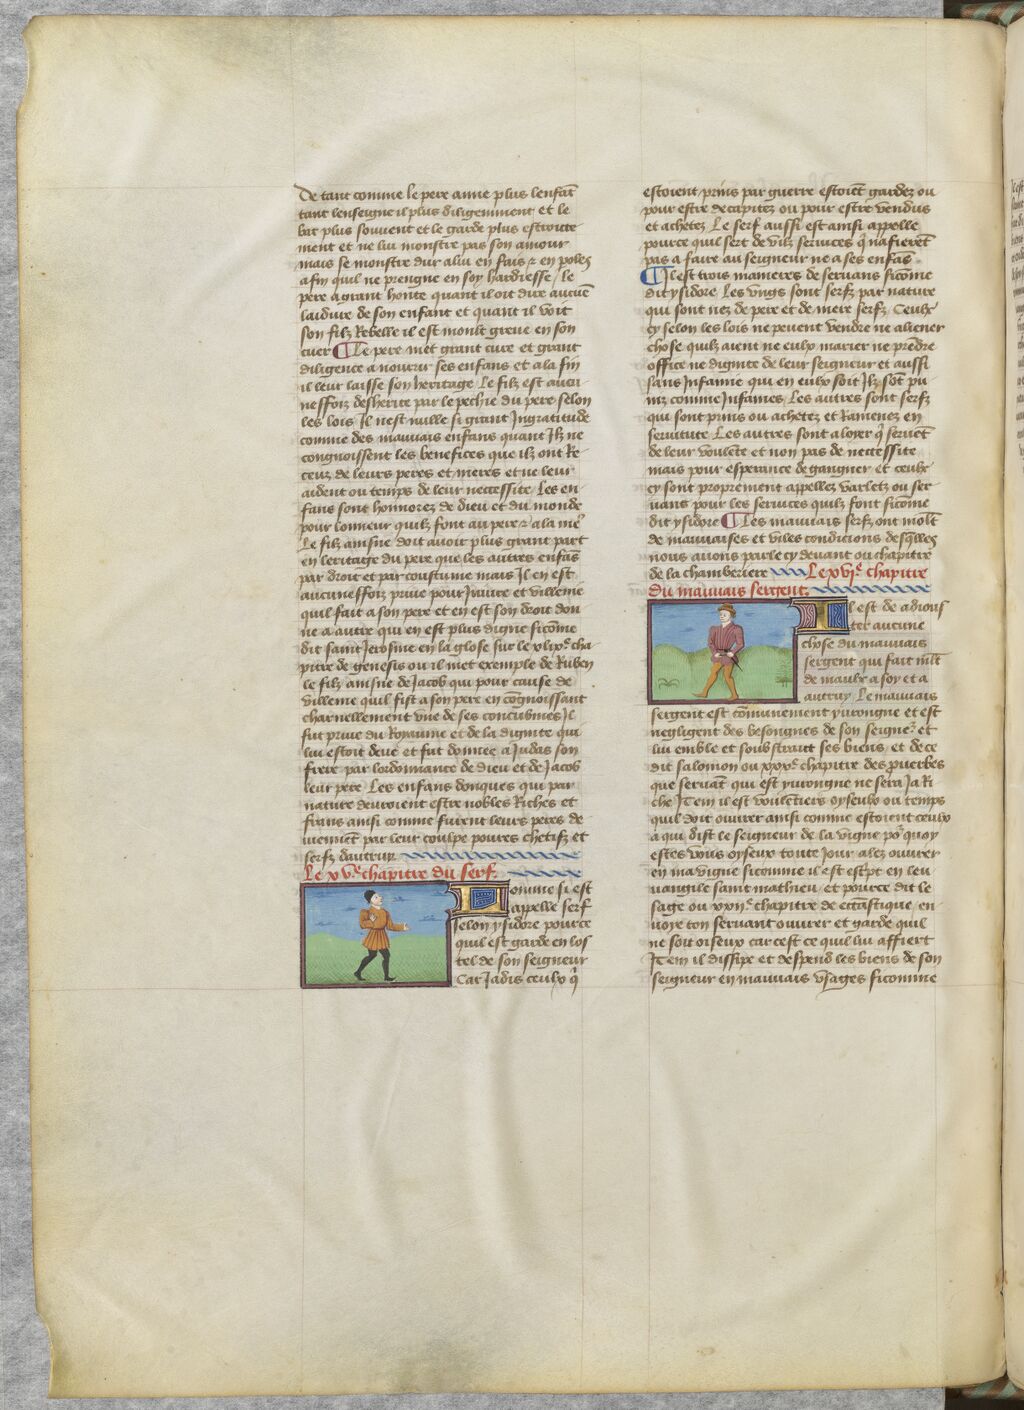 De tant comme le pere aime plus lenfāt
tant lenseigne il plus diligemment et le
bat plus souvent et le garde plus estroicte
ment et ne lui monstre pas son amour
mais se monstre dur a lui en fais et en poles
afin quil ne prengne en soy hardiesse / le
pere a grant honte quant il oit dire aucūe
laidure de son enfant et quant il voit
son filz Rebelle il est moult greue en son
cuer ¶ Le pere met grant cure et grant
diligence a nourrir ses enfans et a la fin
il leur laisse son heritage Le filz est aucu
neffoiz desherite par le pechie du pere selon
les lois Il nest nulle si grant Ingratitude
comme des mauuais enfans quant Ilz ne
congnoissent les benefices que ilz ont Re
ceuz de leurs peres et meres et ne leur
aident ou temps de leur necessite Les en
fans sont honnorez de dieu et du monde
pour lonneur quilz font au pere et a la me͛
Le filz aisne doit auoir plus grant part
en leritage du pere que les autres enfās
par droit et par coustume mais Il en est
aucuneffoiz priue pour Iniure et villenie
quil fait a son pere et en est son droit don
ne a autre qui en est plus digne sicōme
dit saint Jerosme en la glose sur le xlixͤ cha
pitre de genesis ou il met exemple de Ruben
le filz aisne de Jacob qui pour cause de
villenie quil fist a son pere en cōgnoissant
charnellement vne de ses concubines Il
fut priue du Royaume et de la dignite qui
lui estoit deue et fut donnee a Judas son
frere par lordonnance de dieu et de Jacob
leur pere Les enfans donques qui par
nature deuroient estre nobles Riches et
frans ainsi comme furent leurs peres de
uiennēt par leur coulpe poures chetifz et
serfz dautruy
Le xvͤ chapitre du serf.
Comme si est
appelle serf
selon ysidore pource
quil est garde en los
tel de son seigneur
Car Jadis ceulx q̄
estoient prins par guerre estoiēt gardez ou
pour estre decapitez ou pour estre vendus
et achetez Le serf aussi est ainsi appelle
pource quil sert de vilz seruices q̄ nafierēt
pas a faire au seigneur ne a ses enfās
¶ Il est trois manieres de seruans sicōme
dit ysidore Les vngs sont serfz par nature
qui sont nez de pere et de mere serfz Ceulx
cy selon les lois ne peuent vendre ne aliener
chose quilz aient ne eulx marier ne prēdre
office ne dignite de leur seigneur et aussi
sans Infamie qui en eulx soit Ilz sōt pu
niz comme Infames Les autres sont serfz
qui sont prins ou achetez et Ramenez en
seruitute Les autres sont a loyer q̄ seruēt
de leur voulēte et non pas de necessite
mais pour esperance de gangner et ceulx
cy sont proprement appellez varletz ou ser
uans pour les seruices quilz font sicōme
dit ysidore ¶ Les mauuais serfz ont molt
de mauuaises et viles condicions desq̄lles
nous auons parle cy deuant ou chapitre
de la chamberiere Le xviͤ chapitre
du mauuais sergent.
Il est de adious
ter aucune
chose du mauuais
sergent qui fait mlt
de maulx a soy et a
autruy Le mauuais
sergent est cōmunement yurongne et est
negligent des besongnes de son seigne͛ et
lui emble et soubstrait ses biens et de ce
dit salomon ou xxxͤ chapitre des puerbes
que seruāt qui est yurongne ne sera Ja Ri
che Item il est voulentiers oyseulx ou temps
quil doit ouurer ainsi comme estoient ceulx
a qui dist le seigneur de la vigne po͛quoy
estes vous oyseux toute Jour alez ouurer
en ma vigne sicomme il est escpt en leu
uangile saint mathieu et pource dit le
sage ou xxxiiͤ chapitre de ecclāstique en
uoye ton seruant ouurer et garde quil
ne soit oiseux car cest ce quil lui affiert
Item il dissipe et despend les biens de son
seigneur en mauuais vsages sicomme